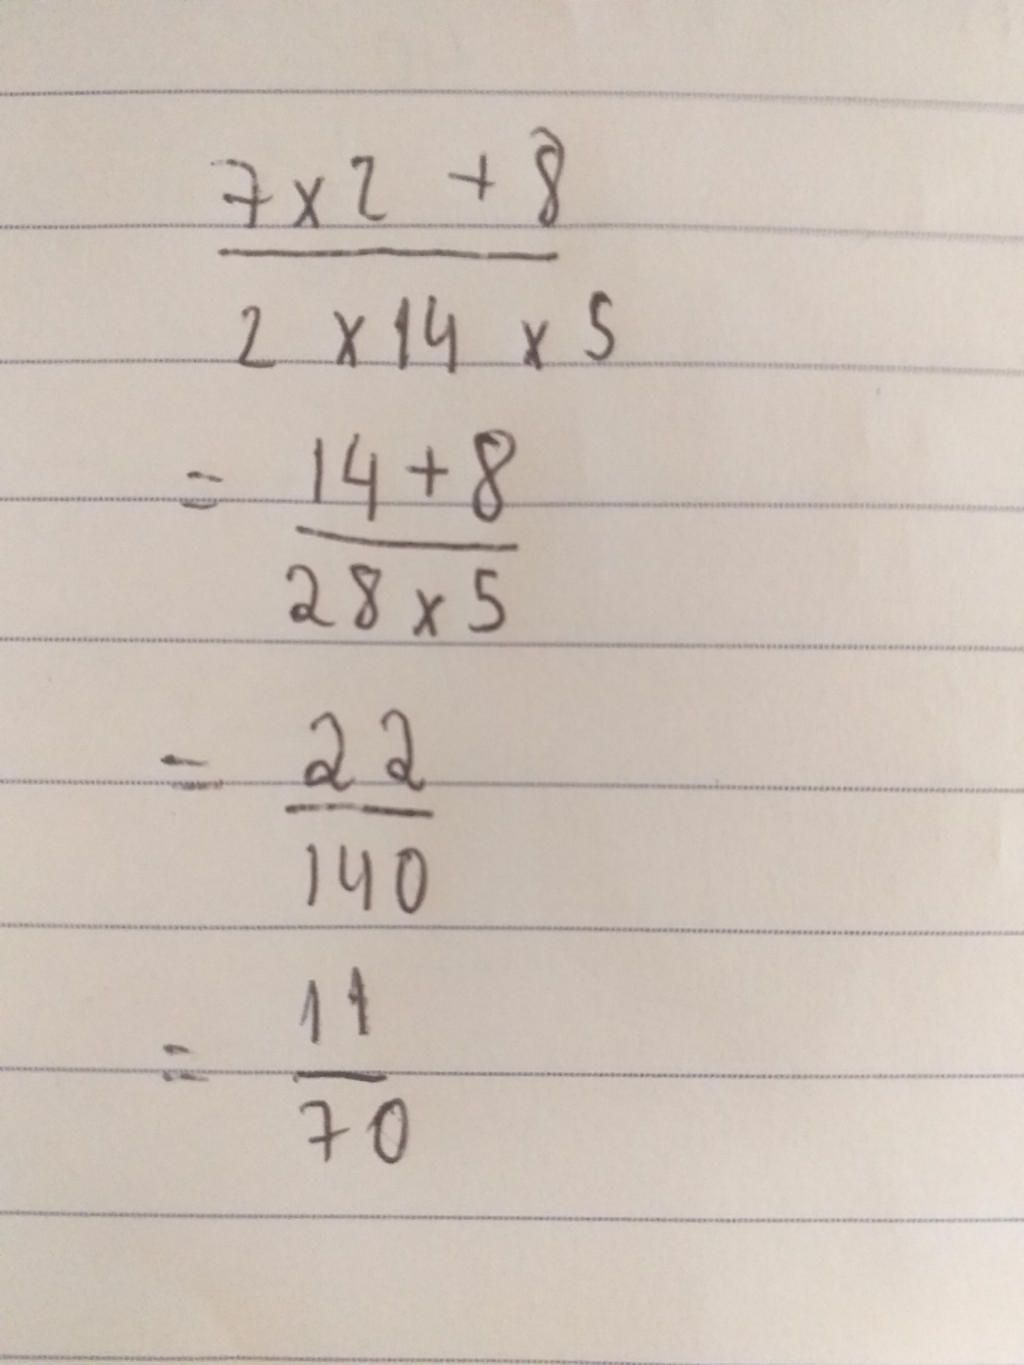 7 x 2 + 8
2 x 14 x 5
= 14 + 8
28 x 5
= 22
140
= 11
70